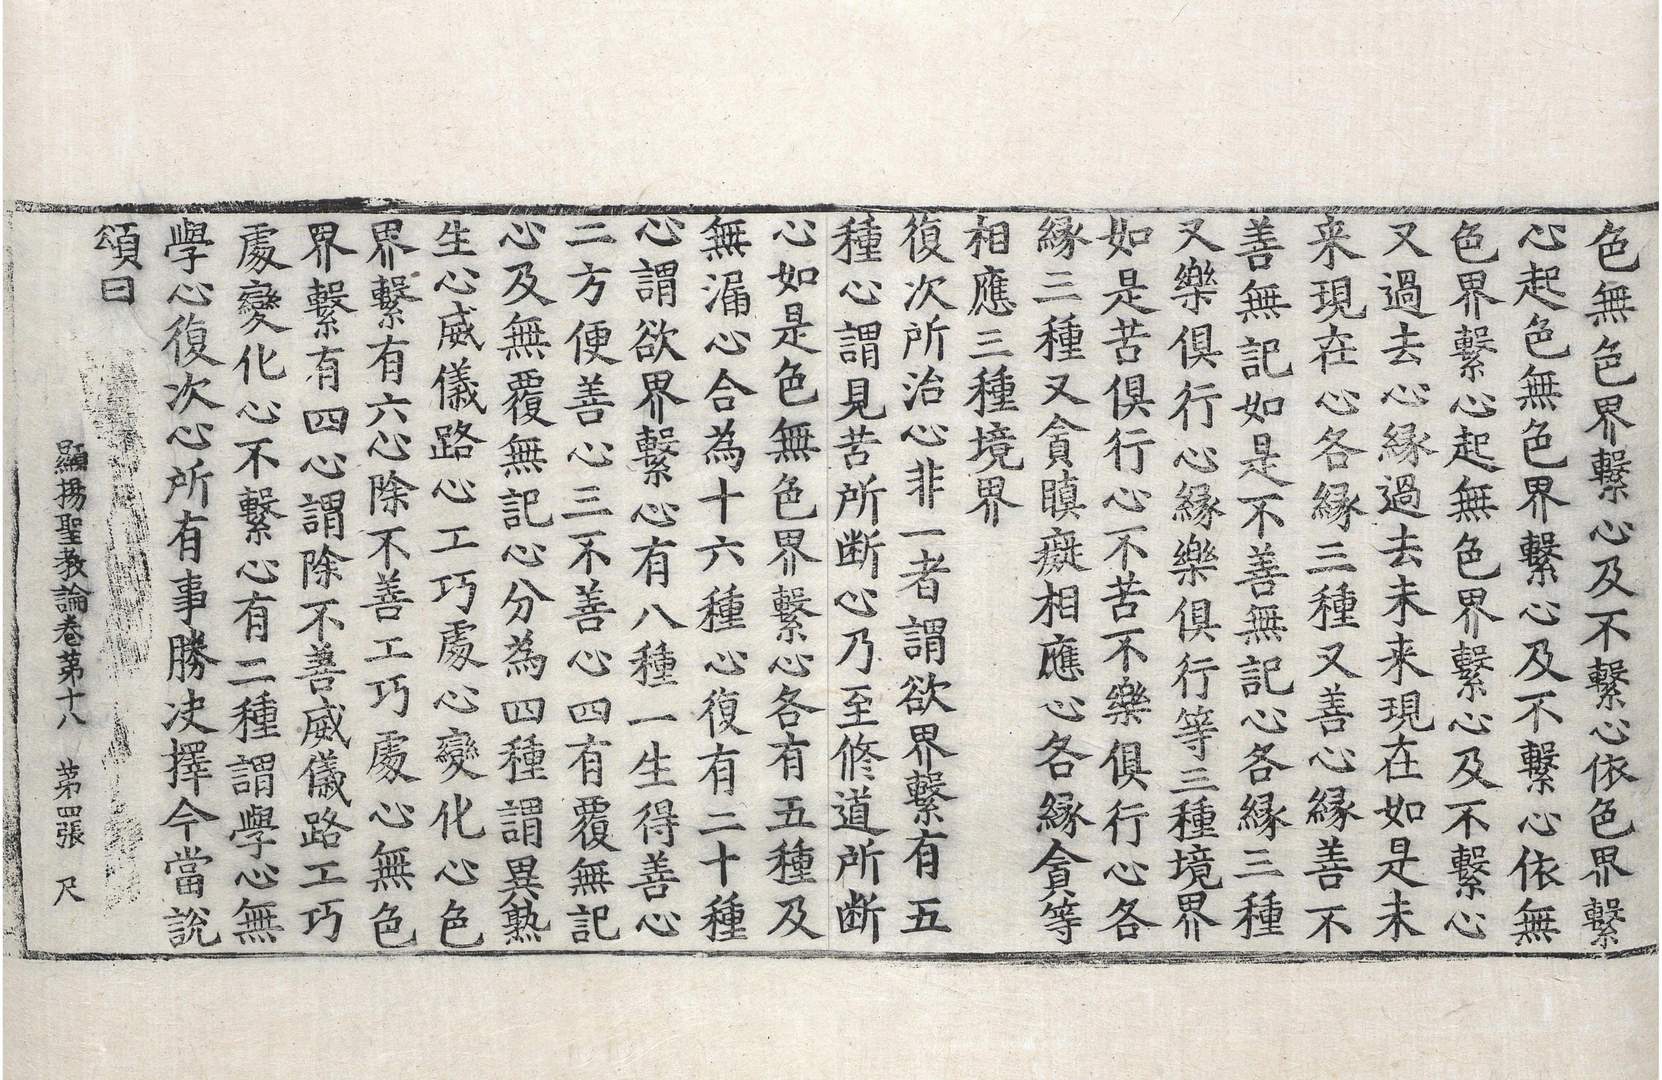 色無色界繫心及不繫心依色界繫
心起色無色界繫心及不繫心依無
色界繫心起無色界繫心及不繫心
又過去心緣過去未来現在如是未
来現在心各緣三種又善心緣善不
善無記如是不善無記心各緣三種
又樂俱行心緣樂俱行等三種境界
如是苦俱行心不苦不樂俱行心各
緣三種又貪瞋癡相應心各緣貪等
相應三種境界
復次所治心非一者謂欲界繫有五
種心謂見苦所断心乃至修道所断
心如是色無色界繫心各有五種及
無漏心合為十六種心復有二十種
心謂欲界繫心有八種一生得善心
二方便善心三不善心四有覆無記
心及無覆無記心分為四種謂異熟
生心威儀路心工巧處心變化心色
界繫有六心除不善工巧處心無色
界繫有四心謂除不善威儀路工巧
處變化心不繫心有二種謂學心無
學心復次心所有事勝决擇今當說
頌曰
顯揚聖教論卷第十八 第四張 尺